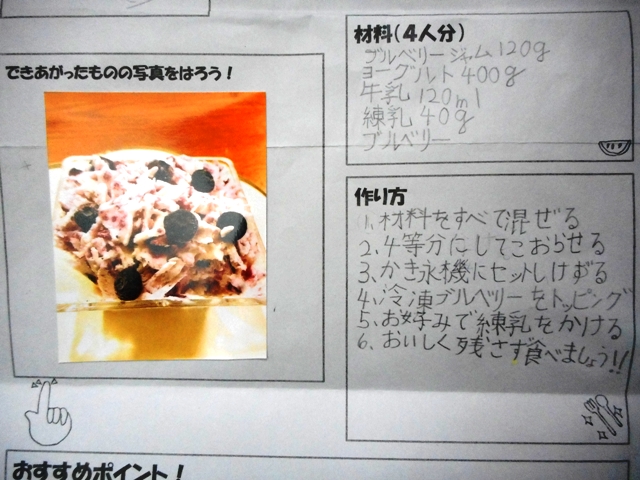 できあがったものの写真をはろう!
材料(4人分)
ブルベリージャム120g
ヨーグルト400g
牛乳120ml
練乳40g
ブルベリー
作り方
1、材料をすべて混ぜる
2、4等分にしてこおらせる
3、かき氷機にセットしけずる
4、冷凍ブルベリーをトッピング
5、お好みで練乳をかける
6、おいしく残さず食べましょう!!
おすすめポイント!